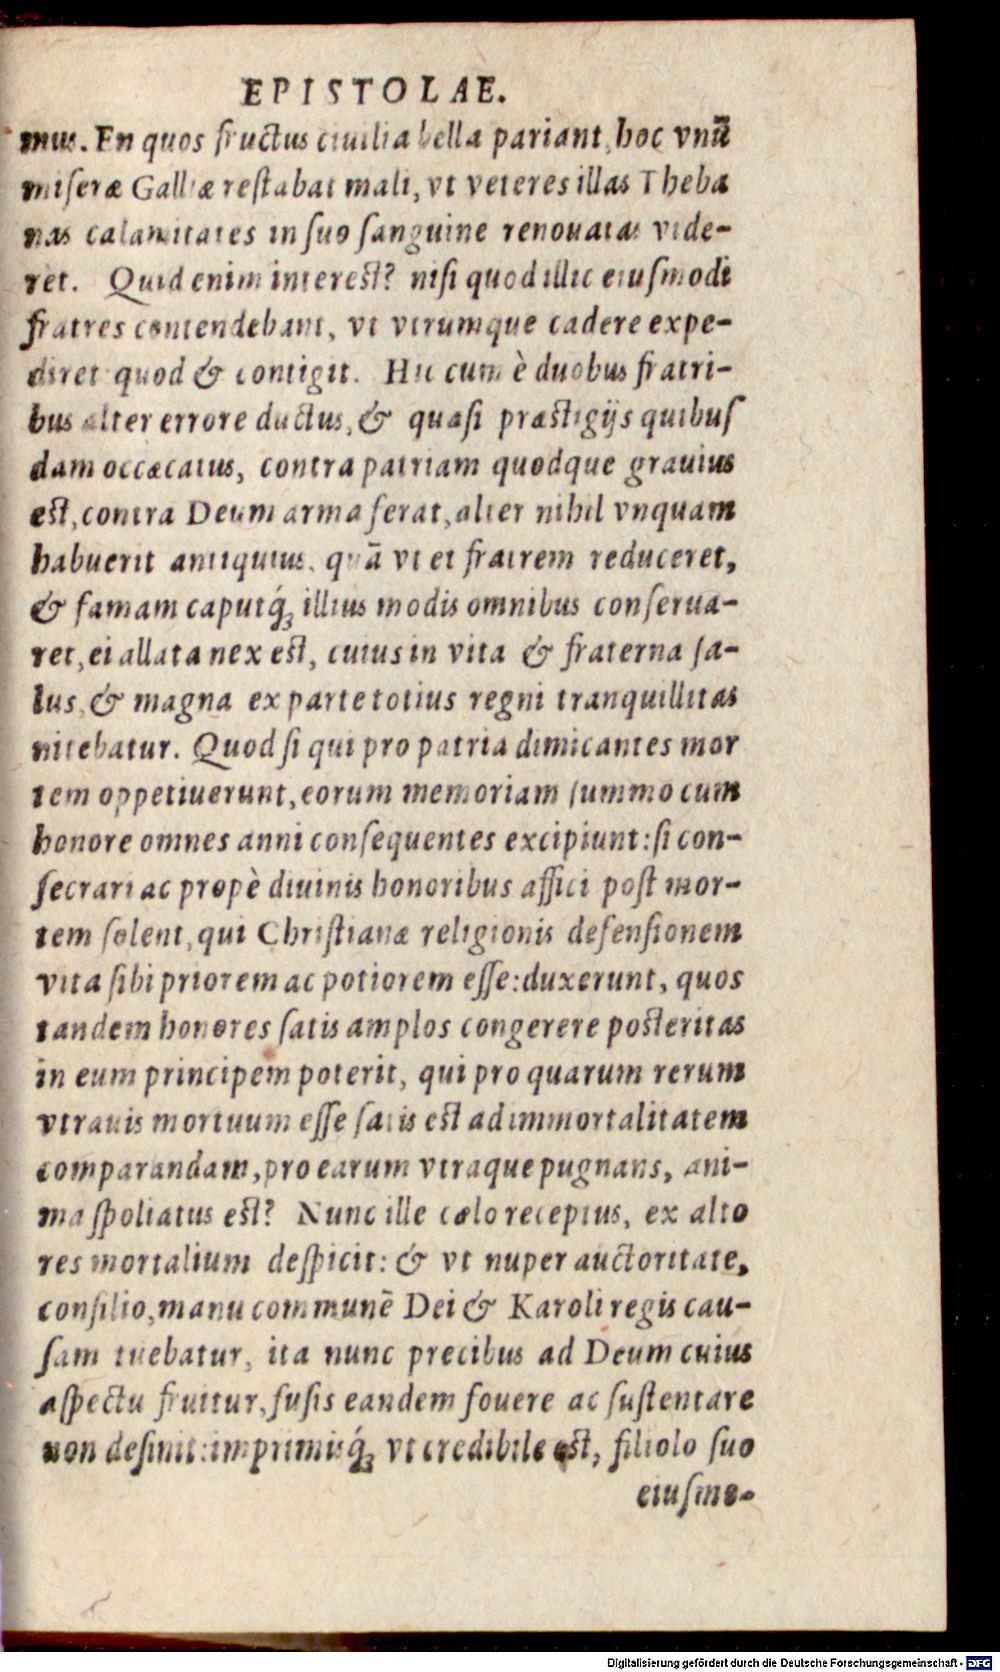 EPISTOLAE.
mus. En quos fructus ciuilia bella pariant, hoc vnũ
miseræ Galliæ restabat mali, vt veteres illas Theba
nas calamitates in suo sanguine renouatas vide-
ret. Quid enim interest? nisi quod illic eiusmodi
fratres contendebant, vt vtrumque cadere expe-
diret quod & contigit. Hic cum è duobus fratri-
bus alter errore ductus, & quasi præstigijs quibus
dam occæcatus, contra patriam quodque grauius
est, contra Deum arma ferat, alter nihil vnquam
habuerit antiquius, quã vt et fratrem reduceret,
& famam caputq́; illius modis omnibus conserua-
ret, ei allata nex est, cuius in vita & fraterna sa-
lus, & magna ex parte totius regni tranquillitas
nitebatur. Quod si qui pro patria dimicantes mor
tem oppetiuerunt, eorum memoriam summo cum
honore omnes anni consequentes excipiunt: si con-
secrari ac propè diuinis honoribus affici post mor-
tem solent, qui Christianæ religionis defensionem
vita sibi priorem ac potiorem esse: duxerunt, quos
tandem honores satis amplos congerere posteritas
in eum principem poterit, qui pro quarum rerum
vtrauis mortuum esse satis est ad immortalitatem
comparandam, pro earum vtraque pugnans, ani-
ma spoliatus est? Nunc ille cælo receptus, ex alto
res mortalium despicit: & vt nuper auctoritate,
consilio, manu communẽ Dei & Karoli regis cau-
sam tuebatur, ita nunc precibus ad Deum cuius
aspectu fruitur, fusis eandem fouere ac sustentare
non desinit: imprimisq́; vt credibile est, filiolo suo
eiusmo-
Digitalisierung gefördert durch die Deutsche Forschungsgemeinschaft - DFG